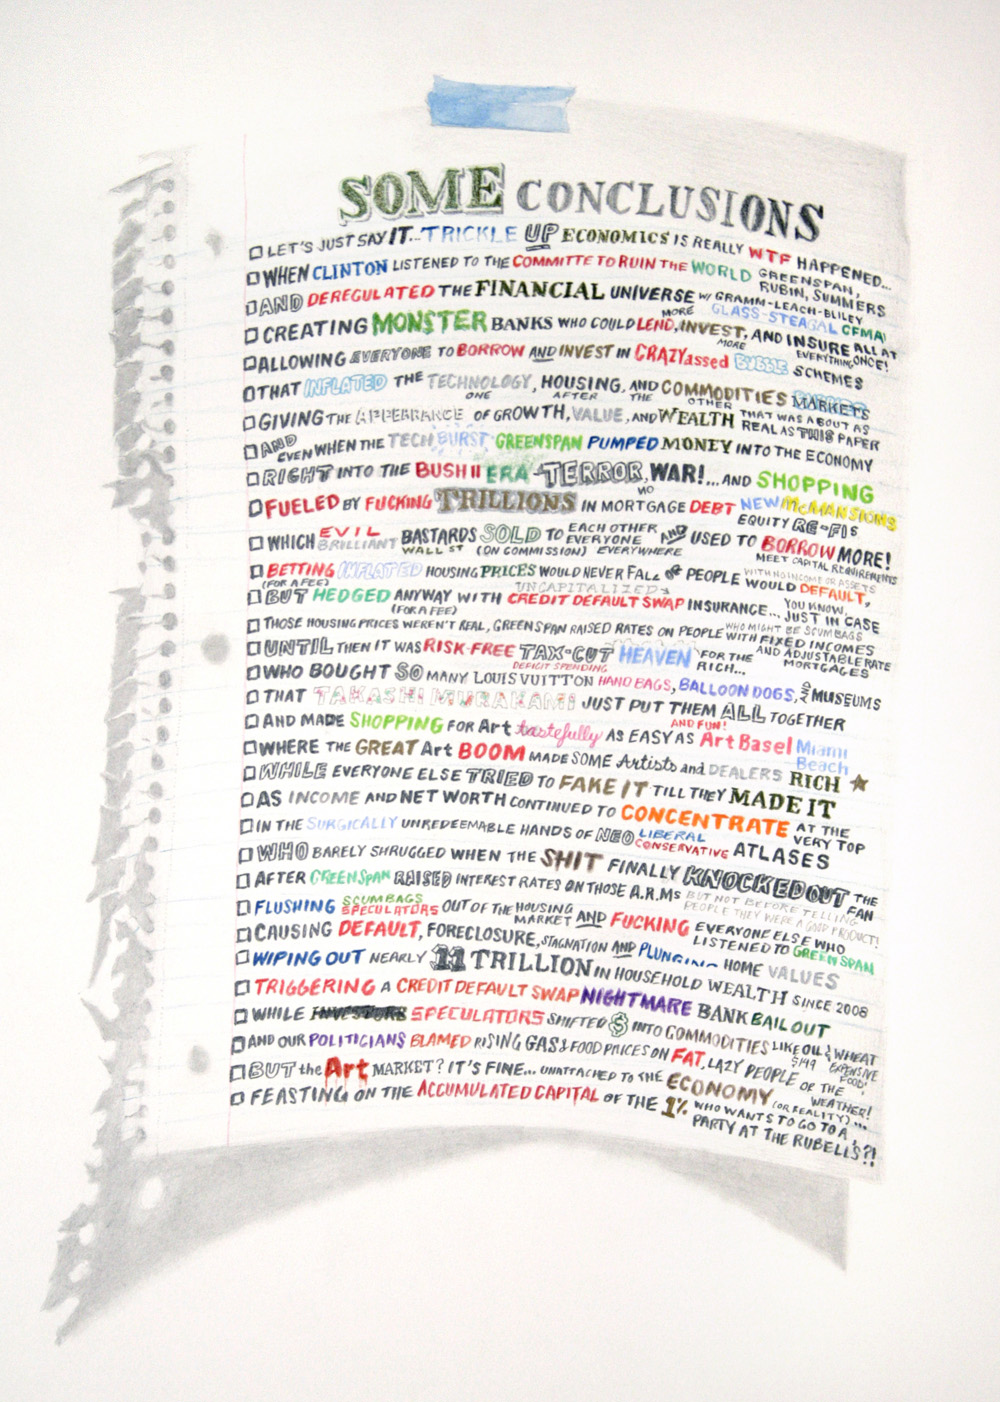 SOME CONCLUSIONS
LET'S JUST SAY IT... TRICKLE UP ECONOMICS IS REALLY WTF HAPPENED...
WHEN CLINTON LISTENED TO THE COMMITTE TO RUIN THE WORLD GREENSPAN, RUBIN, SUMMERS
AND DEREGULATED THE FINANCIAL UNIVERSE W/ GRAMM-LEACH-BLILEY GLASS-STEAGAL CFMA
CREATING MONSTER BANKS WHO COULD LEND, MORE INVEST, AND INSURE ALL AT EVERYTHING ONCE!
ALLOWING EVERYONE TO BORROW AND INVEST IN MORE CRAZYassed BUBBLE SCHEMES
THAT INFLATED THE TECHNOLOGY, HOUSING, AND COMMODITIES MARKETS ONE AFTER THE OTHER
GIVING THE APPEARANCE OF GROWTH, VALUE, AND WEALTH THAT WAS ABOUT AS REAL AS THIS PAPER
AND EVEN WHEN THE TECH BURST, GREENSPAN PUMPED MONEY INTO THE ECONOMY
RIGHT INTO THE BUSH II ERA - TERROR, WAR!... AND SHOPPING
FUELED BY FUCKING TRILLIONS IN MORTGAGE DEBT NEW McMANSIONS EQUITY RE-FIS
WHICH EVIL BRILLIANT BASTARDS WALL ST SOLD (ON COMMISSION) TO EACH OTHER EVERYONE EVERYWHERE AND USED TO BORROW MORE! MEET CAPITAL REQUIREMENTS
BETTING (FOR A FEE) INFLATED HOUSING PRICES WOULD NEVER FALL OR PEOPLE WITH NO INCOME OR ASSETS WOULD DEFAULT,
BUT HEDGED ANYWAY (FOR A FEE) WITH UNCAPITALIZED CREDIT DEFAULT SWAP INSURANCE... YOU KNOW, JUST IN CASE
THOSE HOUSING PRICES WEREN'T REAL, GREENSPAN RAISED RATES ON PEOPLE WHO MIGHT BE SCUMBAGS WITH FIXED INCOMES AND ADJUSTABLE RATE MORTGAGES
UNTIL THEN IT WAS RISK-FREE TAX-CUT DEFICIT SPENDING HEAVEN FOR THE RICH...
WHO BOUGHT SO MANY LOUIS VUITTON HAND BAGS, BALLOON DOGS, AND MUSEUMS
THAT TAKASHI MURAKAMI JUST PUT THEM ALL TOGETHER
AND MADE SHOPPING FOR Art tastefully AND FUN! AS EASY AS Art Basel Miami Beach
WHERE THE GREAT Art BOOM MADE SOME Artists and DEALERS RICH
WHILE EVERYONE ELSE TRIED TO FAKE IT TILL THEY MADE IT
AS INCOME AND NET WORTH CONTINUED TO CONCENTRATE AT THE VERY TOP
IN THE SURGICALLY UNREDEEMABLE HANDS OF NEO LIBERAL CONSERVATIVE ATLASES
WHO BARELY SHRUGGED WHEN THE SHIT FINALLY KNOCKED OUT THE FAN
AFTER GREENSPAN RAISED INTEREST RATES ON THOSE A.R.Ms BUT NOT BEFORE TELLING PEOPLE THEY WERE A GOOD PRODUCT!
FLUSHING SCUMBAGS SPECULATORS OUT OF THE HOUSING MARKET AND FUCKING EVERYONE ELSE WHO LISTENED TO GREENSPAN
CAUSING DEFAULT, FORECLOSURE, STAGNATION AND PLUNGING HOME VALUES
WIPING OUT NEARLY 11 TRILLION IN HOUSEHOLD WEALTH SINCE 2008
TRIGGERING A CREDIT DEFAULT SWAP NIGHTMARE BANK BAIL OUT
WHILE INVESTORS SPECULATORS SHIFTED $ INTO COMMODITIES LIKE OIL $149 & WHEAT EXPENSIVE FOOD!
AND OUR POLITICIANS BLAMED RISING GAS & FOOD PRICES ON FAT, LAZY PEOPLE OR THE WEATHER!
BUT the Art MARKET? IT'S FINE... UNATTACHED TO THE ECONOMY (OR REALITY)...
FEASTING ON THE ACCUMULATED CAPITAL OF THE 1% WHO WANTS TO GO TO A PARTY AT THE RUBELLS?!